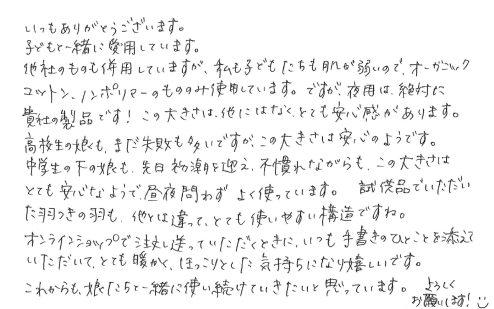 いつもありがとうございます。
子どもと一緒に愛用しています。
他社のものも併用していますが、私も子どもたちも肌が弱いので、オーガニック
コットン、ノンポリマーのもののみ使用しています。ですが、夜用は、絶対に
貴社の製品です！この大きさは、他にはなく、とても安心感があります。
高校生の娘も、まだ失敗も多いですが、この大きさは安心のようです。
中学生の下の娘も、先日初潮を迎え、不慣れながらも、この大きさは
とても安心なようで、昼夜問わずよく使っています。 試供品でいただい
た羽つきの羽も、他とは違って、とても使いやすい構造ですね。
オンラインショップで注文し送っていただくときに、いつも手書きのひとことを添えて
いただいて、とても暖かく、ほっこりとした気持ちになり嬉しいです。
これからも、娘たちと一緒に使い続けていきたいと思っています。 よろしく
お願いします！